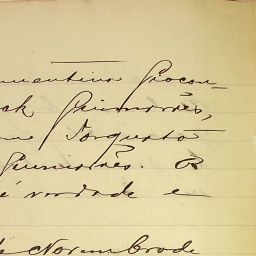 mentina Giocon-
ck Guimarães,
Torquato
Guimarães. O
é verdade e
de Novembro de